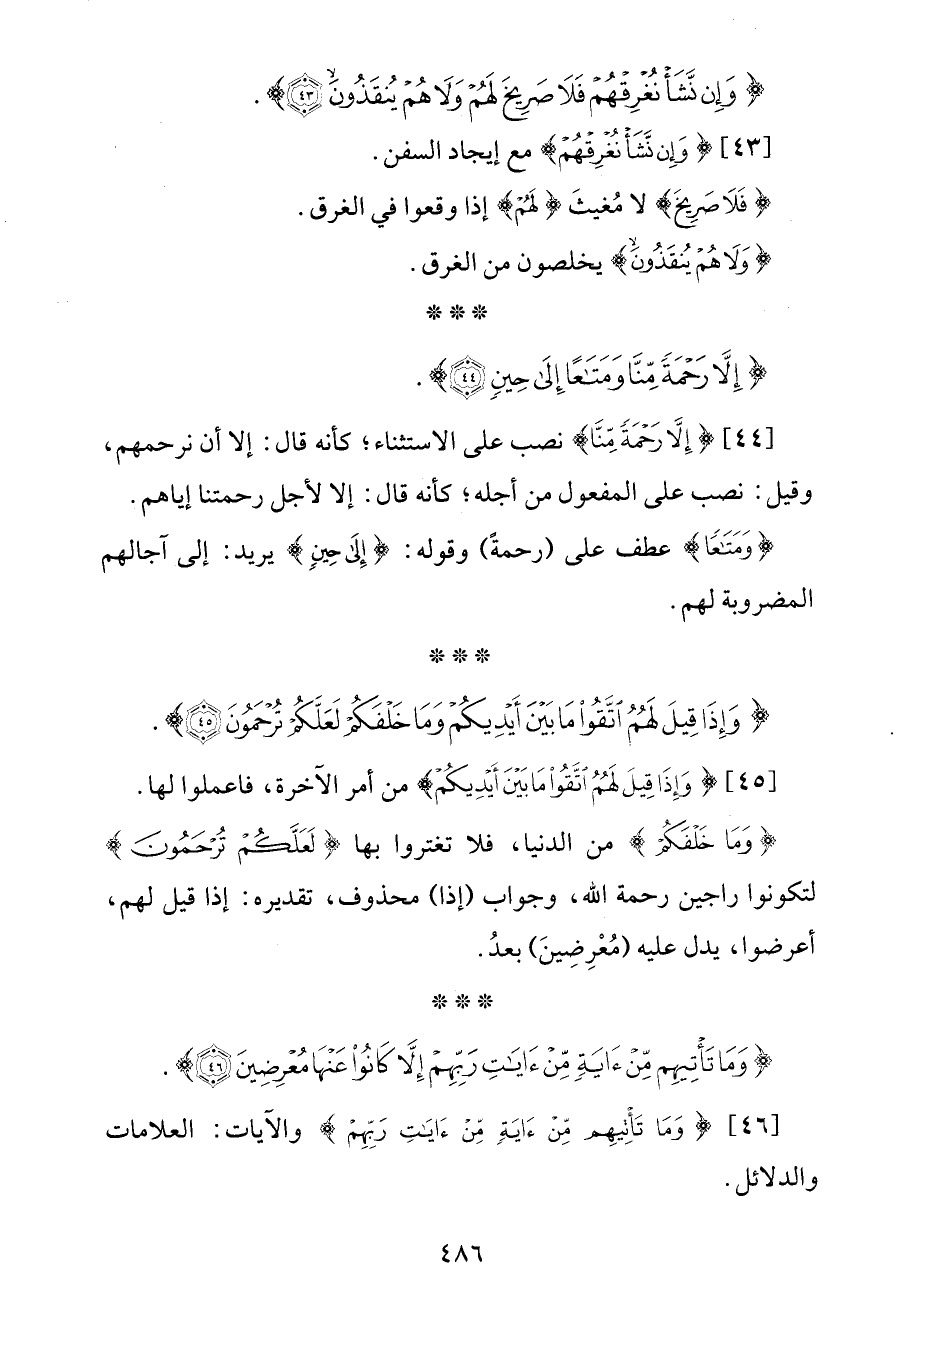 ﴿ وَإِن نَّشَأْ نُغْرِقْهُمْ فَلَا صَرِيخَ لَهُمْ وَلَا هُمْ يُنقَذُونَ ۙ ٤٣ ﴾ .
[٤٣] ﴿ وَإِن نَّشَأْ نُغْرِقْهُمْ ﴾ مع إيجاد السفن .
﴿ فَلَا صَرِيخَ ﴾ لا مُغيثَ ﴿ لَهُمْ ﴾ إذا وقعوا في الغرق .
﴿ وَلَا هُمْ يُنقَذُونَ ۙ ﴾ يخلصون من الغرق .
* * *
﴿ إِلَّا رَحْمَةً مِّنَّا وَمَتَٰعًا إِلَىٰ حِينٍ ٤٤ ﴾ .
[٤٤] ﴿ إِلَّا رَحْمَةً مِّنَّا ﴾ نصب على الاستثناء؛ كأنه قال: إلا أن نرحمهم،
وقيل: نصب على المفعول من أجله؛ كأنه قال: إلا لأجل رحمتنا إياهم .
﴿ وَمَتَٰعًا ﴾ عطف على (رحمةً) وقوله: ﴿ إِلَىٰ حِينٍ ﴾ يريد: إلى آجالهم
المضروبة لهم .
* * *
﴿ وَإِذَا قِيلَ لَهُمُ ٱتَّقُوا۟ مَا بَيْنَ أَيْدِيكُمْ وَمَا خَلْفَكُمْ لَعَلَّكُمْ تُرْحَمُونَ ٤٥ ﴾ .
[٤٥] ﴿ وَإِذَا قِيلَ لَهُمُ ٱتَّقُوا۟ مَا بَيْنَ أَيْدِيكُمْ ﴾ من أمر الآخرة، فاعملوا لها .
﴿ وَمَا خَلْفَكُمْ ﴾ من الدنيا، فلا تغتروا بها ﴿ لَعَلَّكُمْ تُرْحَمُونَ ﴾
لتكونوا راجين رحمة الله، وجواب (إذا) محذوف، تقديره: إذا قيل لهم،
أعرضوا، يدل عليه (مُعْرِضِينَ) بعدُ .
* * *
﴿ وَمَا تَأْتِيهِم مِّنْ ءَايَةٍ مِّنْ ءَايَٰتِ رَبِّهِمْ إِلَّا كَانُوا۟ عَنْهَا مُعْرِضِينَ ٤٦ ﴾ .
[٤٦] ﴿ وَمَا تَأْتِيهِم مِّنْ ءَايَةٍ مِّنْ ءَايَٰتِ رَبِّهِمْ ﴾ والآيات: العلامات
والدلائل .
٤٨٦